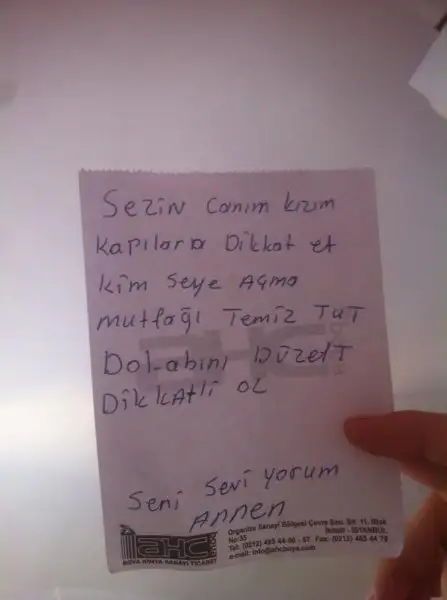 Sezin Canım kızım
Kapılara Dikkat et
kim seye Açma
mutfağı Temiz TuT
Dol-abını DüzelT
DikkAtli oL
Seni Sevi yorum
Annen
AHC
BOYA KİMYA SANAYİ TİCARET
Organize Sanayi Bölgesi Çevre San. Sit. 11. Blok
No:55 İkitelli - İSTANBUL
Tel: (0212) 485 44 86 - 87 Fax: (0212) 485 44 78
e-mail: info@ahcboya.com